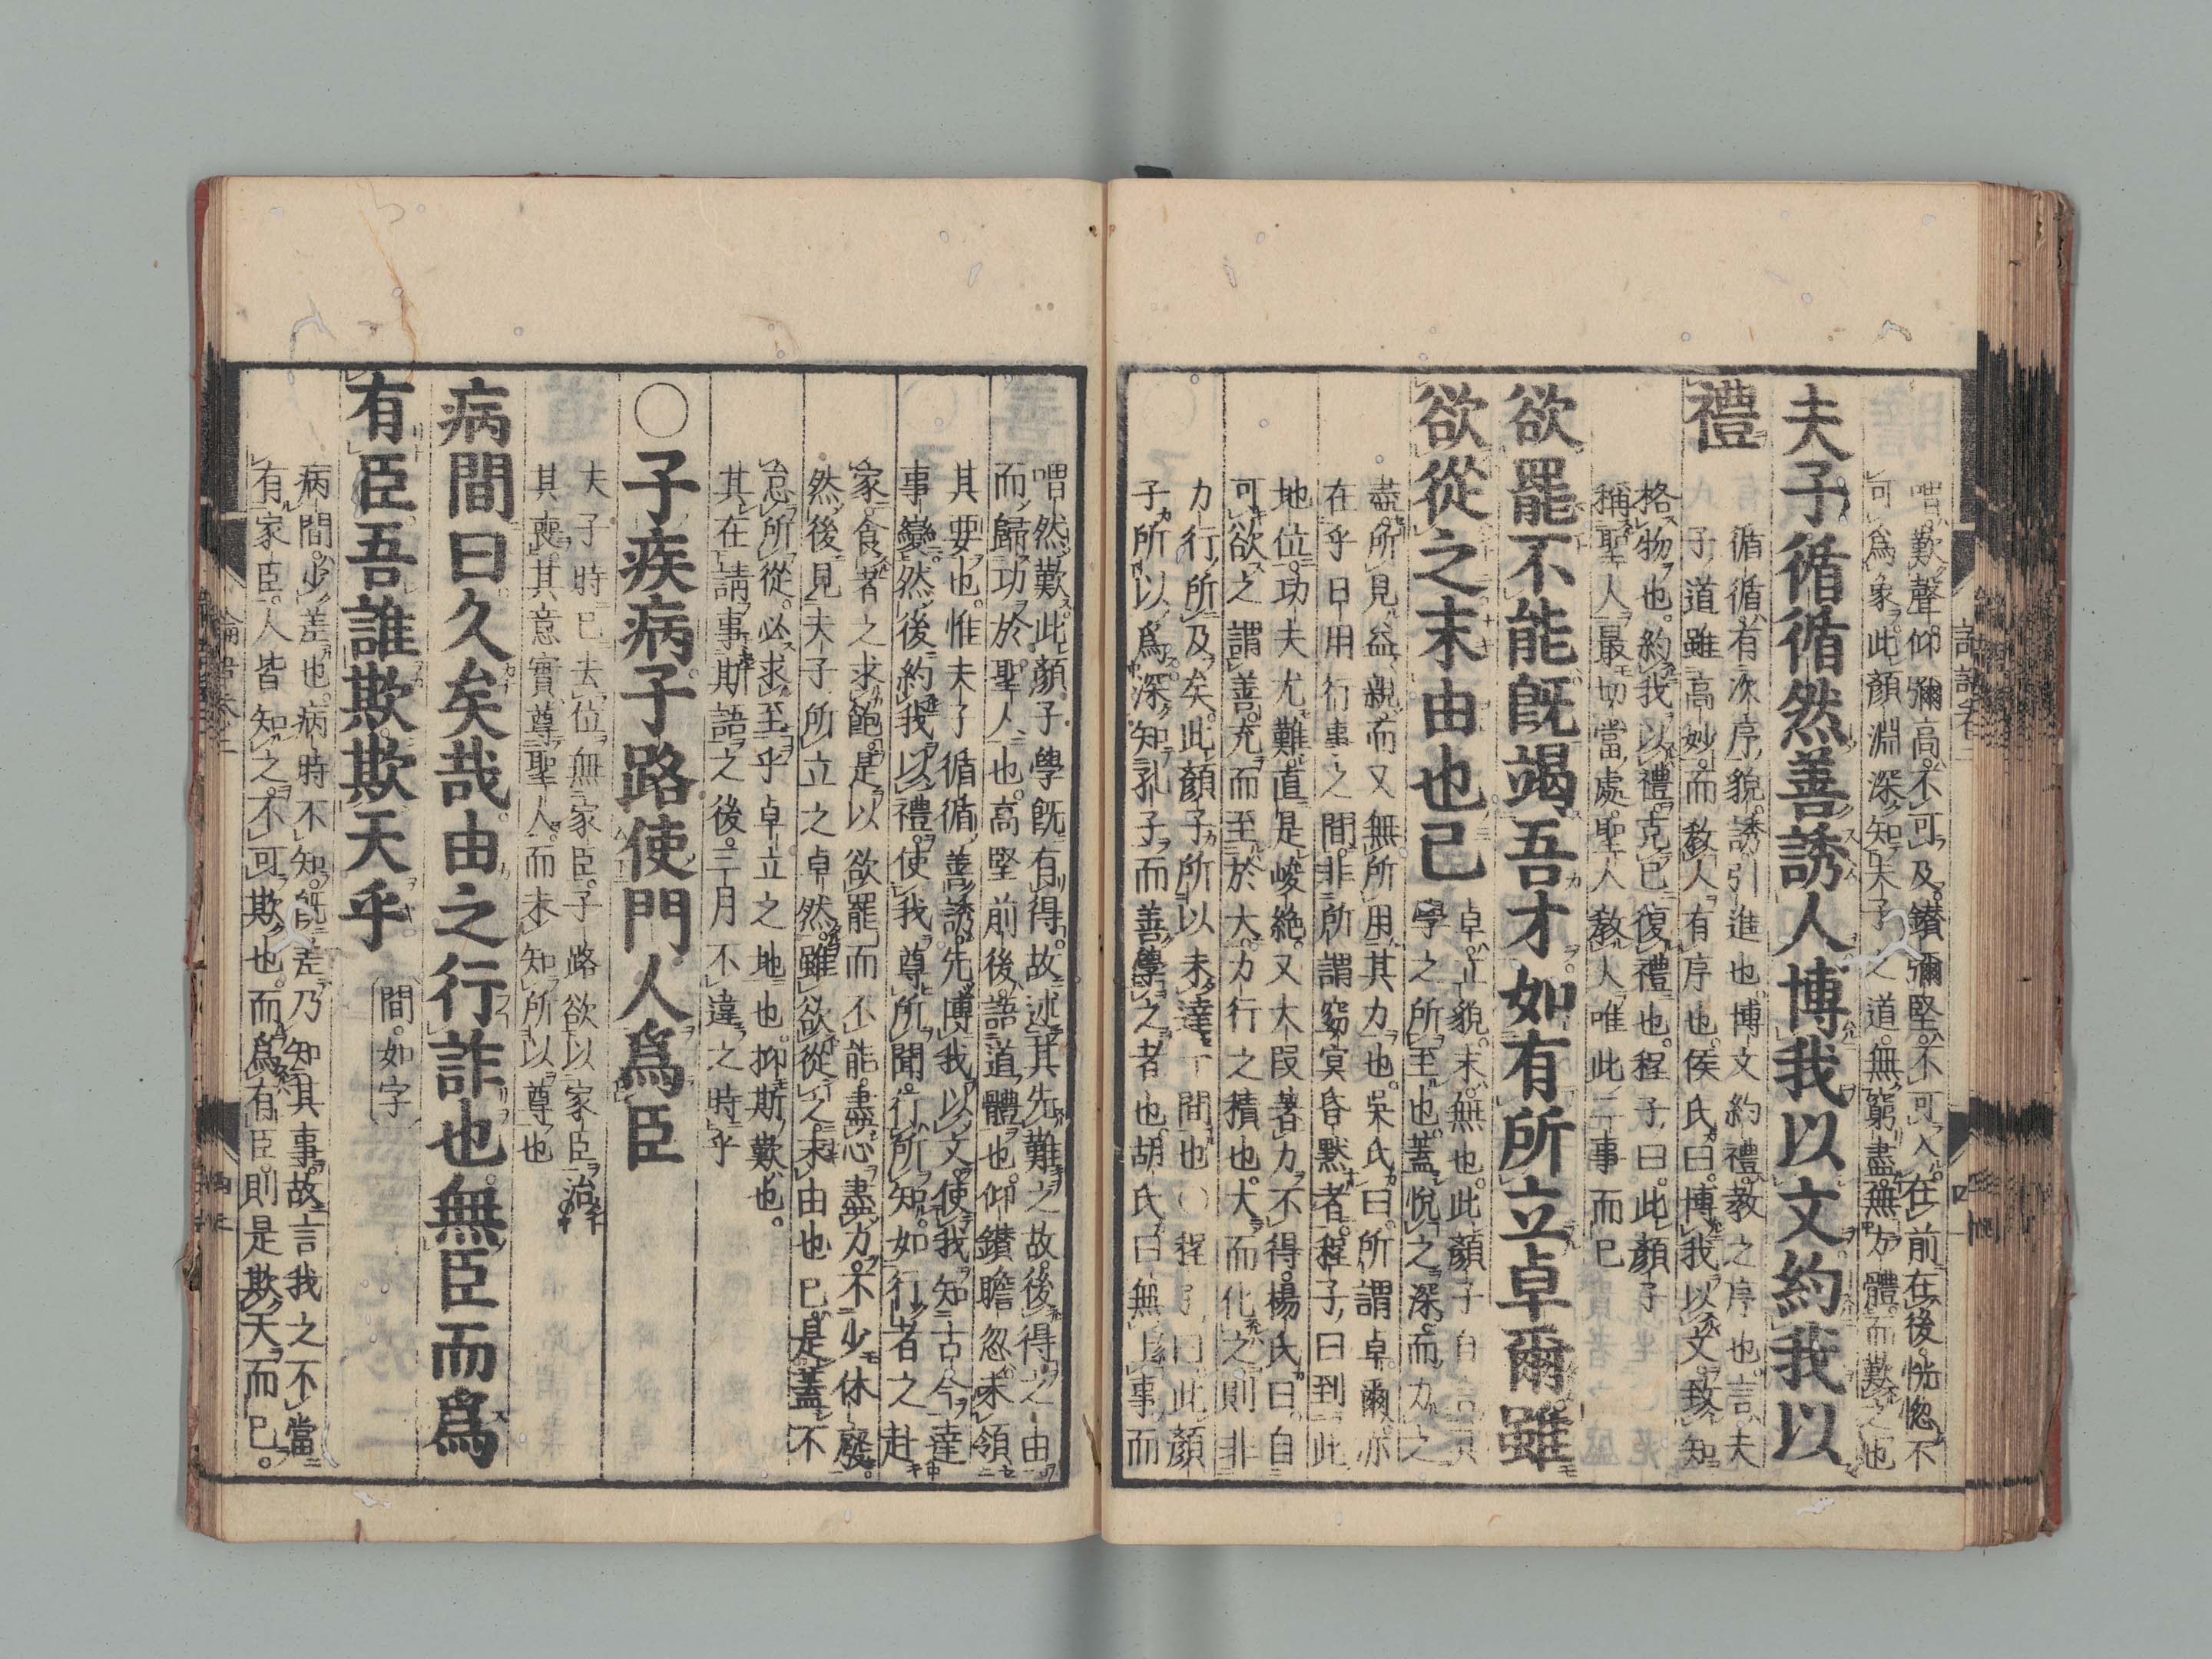 喟歎聲仰彌高不可及鑚彌堅不可入在前在後恍惚不
可爲象此顏淵深知夫子之道無窮盡無方體而歎之也
夫子循循然善誘人博我以文約我以
禮
循循有次序貌誘引進也博文約禮教之序也言夫
子道雖高妙而教人有序也侯氏曰博我以文致知
格物也約我以禮克已復禮也程子曰此顏子
稱聖人最切當處聖人教人唯此二事而已
欲罷不能旣竭吾才如有所立卓爾雖
欲從之末由也已
卓立貌末無也此顏子自言其
學之所至也蓋悅之深而力之
盡所見益親而又無所用其力也吳氏曰所謂卓爾亦
在乎日用行事之間非所謂窈冥昏默者程子曰到此
地位功夫尤難直是峻絶又大段著力不得楊氏曰自
可欲之謂善充而至於大力行之積也大而化之則非
力行所及矣此顏子所以未達一間也〇程子曰此顏
子所以爲深知孔子而善學之者也胡氏曰無上事而
喟然歎此顏子學旣有得故述其先難之故後得之由
而歸功於聖人也高堅前後語道體也仰鑚瞻忽未領
其要也惟夫子循循善誘先博我以文使我知古今達
事變然後約我以禮使我尊所聞行所知如行者之赴
家食者之求飽是以欲罷而不能盡心盡力不少休廢
然後見夫子所立之卓然雖欲從之末由也已是蓋不
怠所從必求至乎卓立之地也抑斯歎也
其在請事斯語之後三月不違之時乎
〇子疾病子路使門人爲臣
夫子時已去位無家臣子路欲以家臣治
其喪其意實尊聖人而未知所以尊也
病間曰久矣哉由之行詐也無臣而爲
有臣吾誰欺欺天乎
間如字
病間少差也病時不知旣差乃知其事故言我之不當
有家臣人皆知之不可欺也而爲有臣則是欺天而已